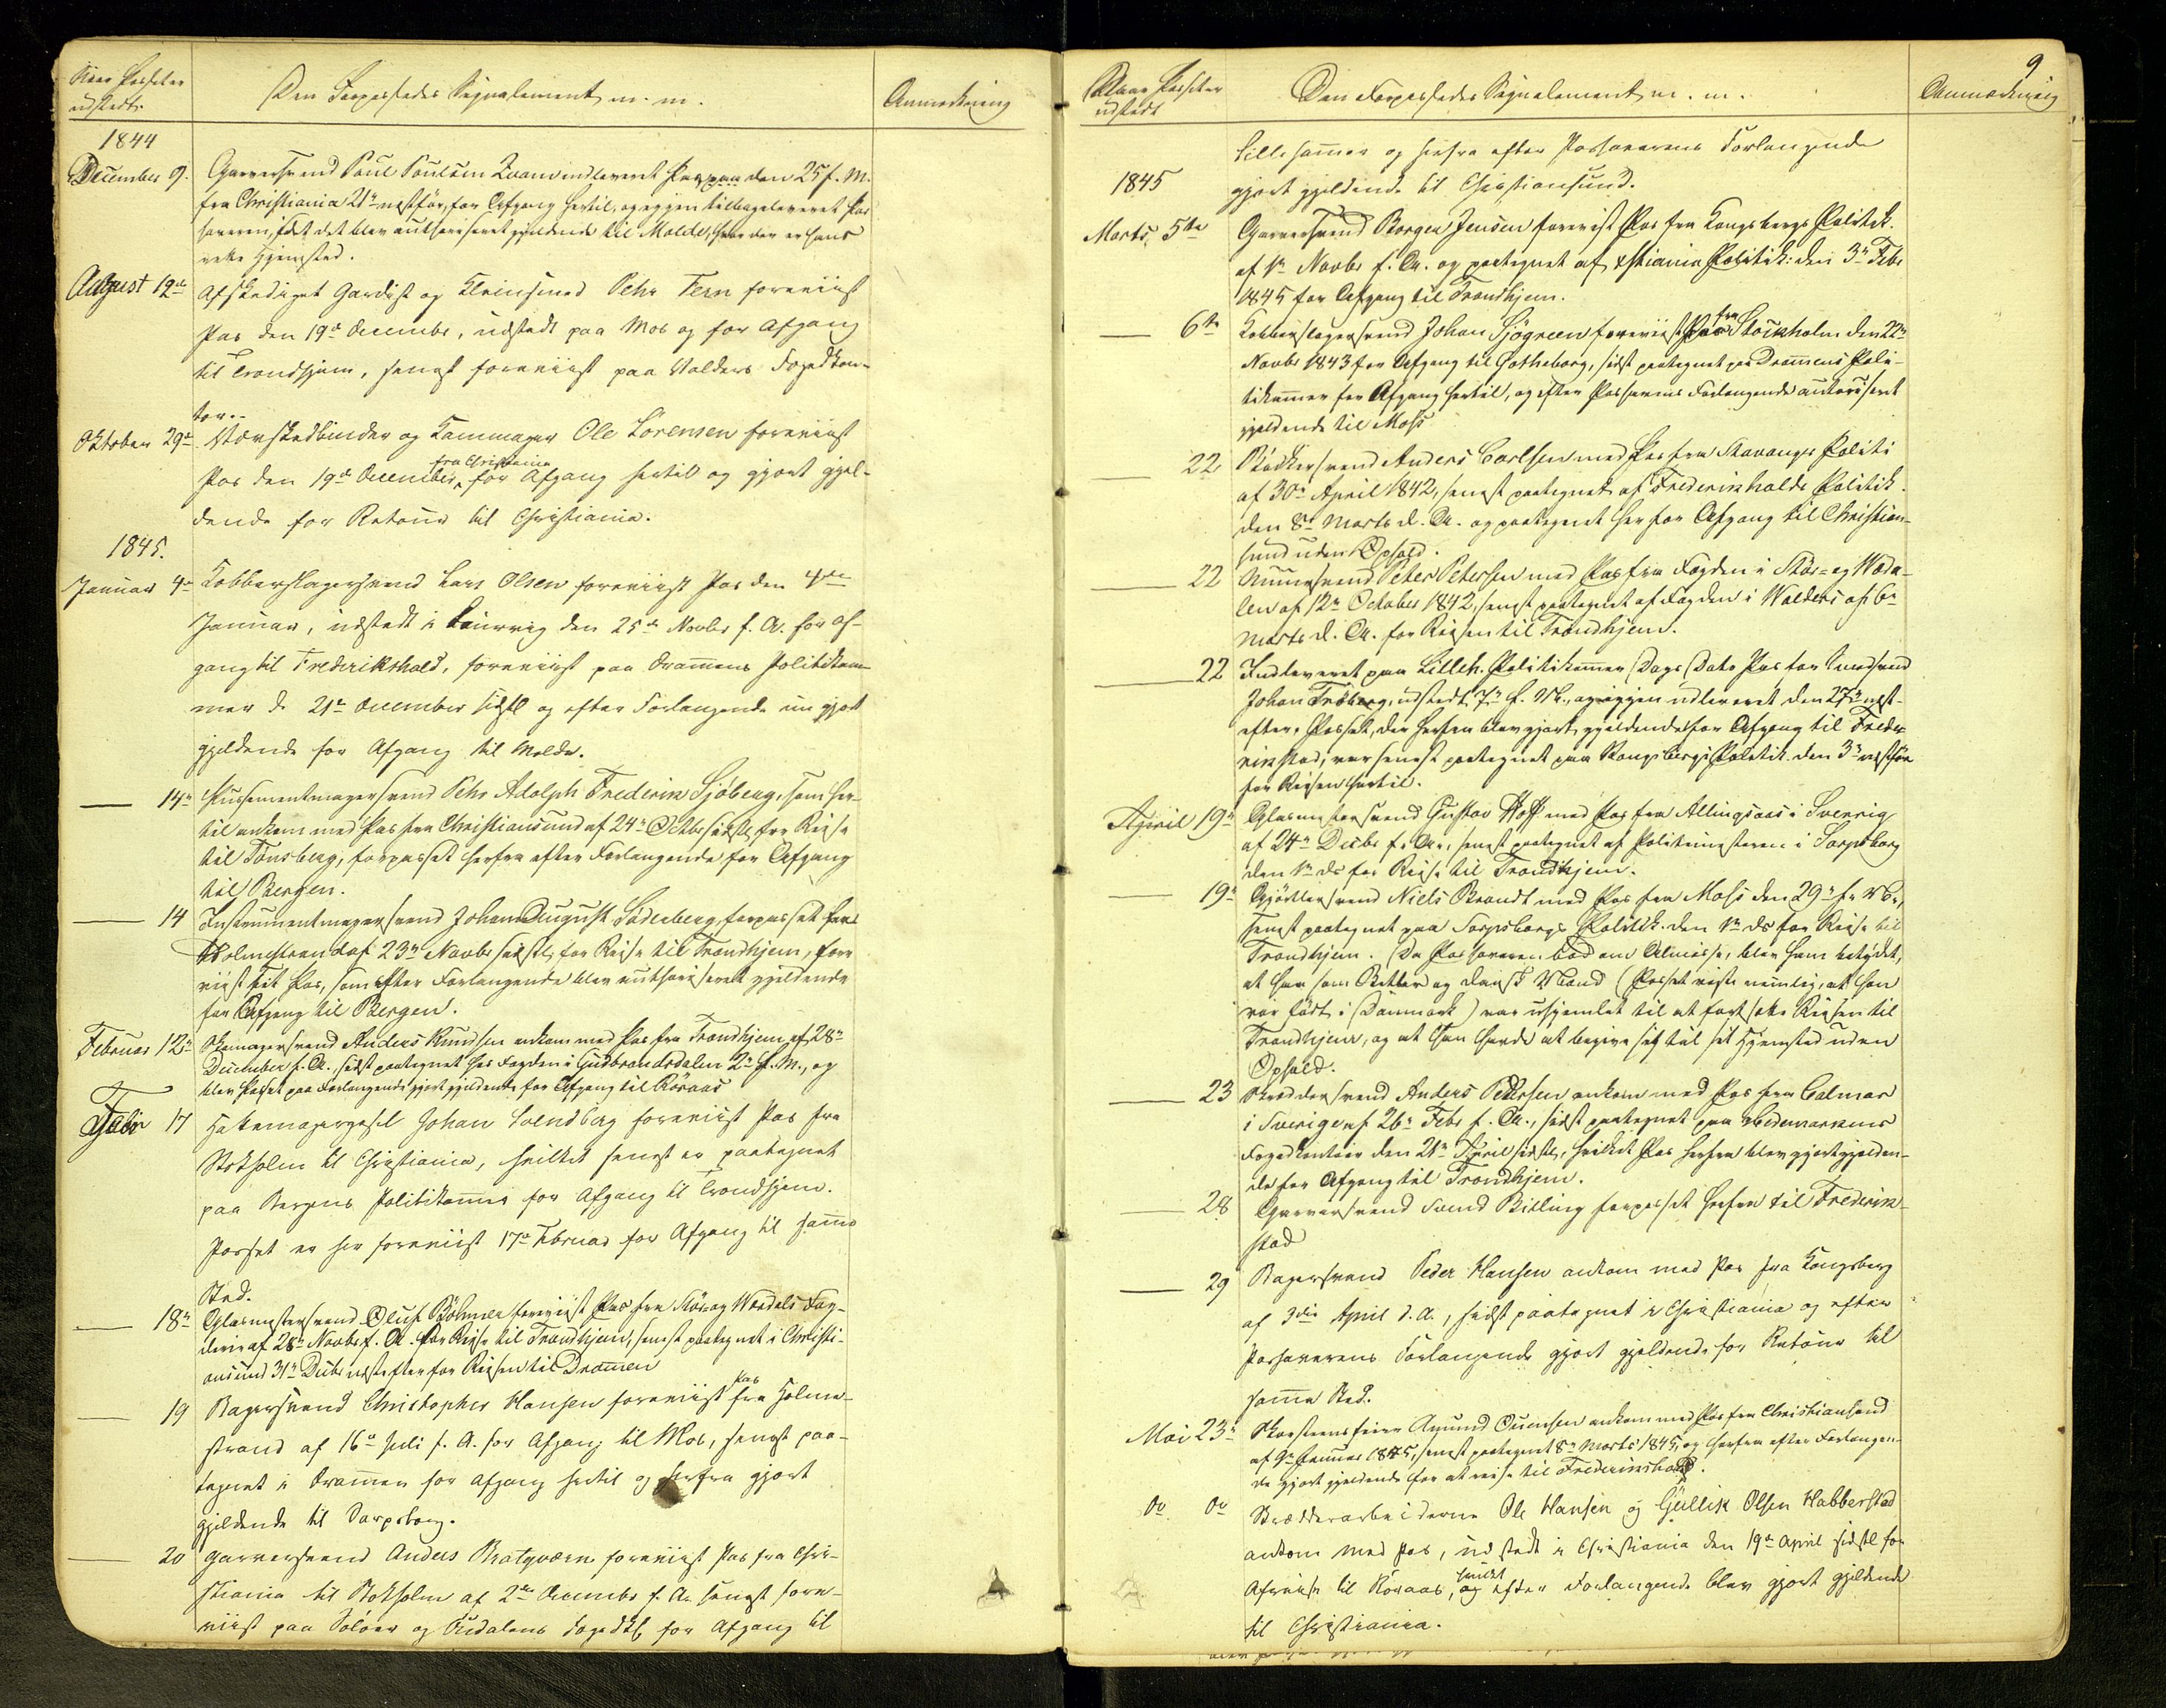 Naar Passeter
udstedt.
Den Forpassedes Signalement m. m.
Anmærkning
1844
December 9. Garversvend Poul Poulsen indleveret Pas paa den 25 f. M.
fra Christiania 21de næstfør, for Afgang hertil, og igjen tilbageleveret Pas
haveren, idet det blev authoriseret gjældende til Molde, hvor der er hans
rette Hjemsted.
August 19de Afskediget Gardist og Kleinsmed Pehr Fern foreviist
Pas den 19de Decembr, udstedt paa Mos og for Afgang
til Trondhjem, senest foreviist paa Valders Fogedkon-
tor.-
Oktober 29de Vævskedbinder og Kammager Ole Lorensen foreviist
Pas den 19de December fra Christiania for Afgang hertil og gjort gjel-
dende for Retour til Christiania.
1845.
Januar 4de Kobberslagersvend Lars Olsen foreviist Pas den 4de
Januar, udstedt i Laurvig den 25de Novbr f. A. for Af-
gang til Frederikshald, foreviist paa Drammens Politikam-
mer d. 21de December sidstl. og efter Forlangende nu gjort
gjeldende for Afgang til Molde.
— 14de Instrumentmagersvend Pehr Adolph Frederik Sjøberg, som her-
til ankom med Pas fra Christiansund af 24de Octbr sidstl. for Reise
til Tønsberg, forpasset herfra efter Forlangende for Afgang
til Bergen.
— 14 Instrumentmagersvend Johan August Söderberg, forpasset fra
Holmestrand af 23de Novbr sidstl. for Reise til Trondhjem, fore
viist sit Pas, som efter Forlangende blev authoriseret gjeldende
for Afgang til Bergen.
Februar 12de Skomagersvend Anders Knudsen ankom med Pas fra Trondhjem af 28de
December f. A., sidst paategnet hos Fogden i Gudbrandsdalen 2de f. M., og
blev Passet paa Forlangende gjort gjeldende for Afgang til Röraas
Febr 17 Hattemagergesel Johan Svendberg foreviist Pas fra
Stokholm til Christiania, hvilket senest er paategnet
paa Bergens Politikammer for Afgang til Trondhjem.
Passet er her foreviist 17de Februar for Afgang til samme
Sted.
— 18de Glasmestersvend Oluf Böhmer foreviist Pas fra Stør og Værdals Fog-
deri af 28de Novbr f. A. for Reise til Trondhjem, senest paategnet i Christi-
ansund 31de Decbr næstefter for Reisen til Drammen
— 19 Bagersvend Christopher Hansen foreviist Pas fra Holme-
strand af 16de Juli f. A. for Afgang til Mos, senest paa-
tegnet i Drammen for Afgang hertil og herfra gjort
gjeldende til Sarpsborg.
— 20 Garversvend Anders Bratqværn foreviist Pas fra Chri-
stiania til Stokholm af 2de Decembr f. A. senest fore-
viist paa Soløer og Østdalens Fogdktr for Afgang til
9
Naar Passeter
udstedt
Den Forpassedes Signalement m. m.
Anmærkning
Lillehammer og herfra efter Passhaverens Forlangende
gjort gjeldende til Christiansund.
1845
Marts 5te Garversvend Borger Jensen foreviist Pas fra Kongsbergs Politik.
af 1ste Novbr f. A. og paategnet af Xstiania Politik: den 3de Febr
1845 for Afgang til Trondhjem.
— 6te Kobberslagersvend Johan Sjögreen foreviist Pas fra Stockholm den 22de
Novbr 1843 for Afgang til Gotheborg, sidst paategnet paa Drammens Poli-
tikammer for Afgang hertil, og efter Passhaverens Forlangende autoriseret
gjeldende til Moss
— 22 Bødkersvend Anders Carlsen med Pas fra Stavanger Politi
af 30te April 1842, senest paategnet af Frederikshalds Politik.
den 8de Marts d. A. og paategnet her for Afgang til Christian-
sund uden Ophold.
— 22 Muursvend Peter Petersen med Pas fra Fogden i Stør- og Værda-
len af 12te October 1842, senest paategnet af Fogden i Walders af 6te
Marts d. A. for Reisen til Trondhjem.
— 22 Indleveret paa Lilleh. Politikammer Dags Dato Pas for Smedsvend
Johan Fröberg, udstedt 7de f. M., og igjen udleveret den 27de næst-
efter. Passet, der herfra blev gjort gjeldende for Afgang til Frede-
rikstad, var senest paategnet paa Kongsbergs Politik. den 3de næstfør
for Reisen hertil.
April 19de Glasmestersvend Gustav Hoff med Pas fra Allingsaas i Sverrig
af 24de Decbr f. A., senest paategnet af Politimesteren i Sarpsborg
den 1ste ds for Reise til Trondhjem.
— 19de Gjørtlersvend Niels Brandt med Pas fra Moss den 29de f. M.,
senest paategnet paa Sarpsborgs Politik. den 1ste ds for Reise til
Trondhjem. Da Passhaveren bad om Almisse, blev ham betydet,
at han som Betler og dansk Mand (Passet viste nemlig, at han
var født i Danmark) var uhjemlet til at fortsætte Reisen til
Trondhjem, og at han havde at begive sig til sit Hjemsted uden
Ophold.
— 23 Skræddersvend Anders Petersen ankom med Pas fra Calmar
i Sverige af 26de Febr f. A., sidst paategnet paa Hedemarkens
Fogedkontoir den 21de April sidstl., hvilket Pas herfra blev gjort gjelden-
de for Afgang til Trondhjem.
— 28 Garversvend Svend Billing forpasset herfra til Frederik-
stad
— 29 Bagersvend Peder Hansen ankom med Pas fra Kongsberg
af 3die April d. A., sidst paategnet i Christiania og efter
Passhaverens Forlangende gjort gjeldende for Retour til
samme Sted.
Mai 23de Skorsteensfeier Amund Evensen ankom med Pas fra Christiansand
af 9de Januar 1845, senest paategnet 8de Marts 1845, og herfra efter Forlangen-
de gjort gjeldende for at reise til Frederikshald.
do do Brædderarbeiderne Ole Hansen og Gullik Olsen Habberstad
ankom med Pas, udstedt i Christiania den 19de April sidstl. for
Afreise til Röraas, hvilket efter Forlangende blev gjort gjeldende
til Christiania.